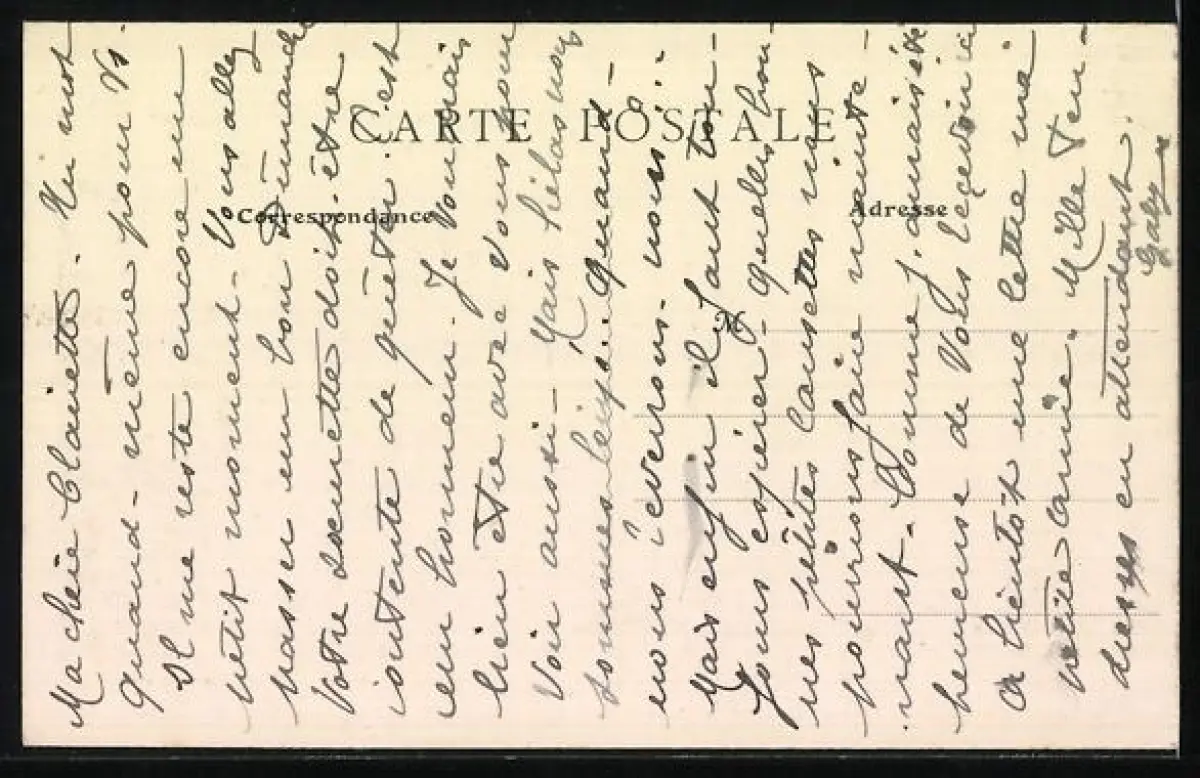 CARTE POSTALE
Correspondance
Adresse
M
Ma chère Clairette. Un mot
quand-même pour Vs.
Il me reste encore un
petit moment. Vous allez
passer un bon Dimanche
Votre soeurette doit être
contente de quêter. c'est
un honneur. Je Voudrais
bien être avec Vous pour
Voir aussi - Mais hélas nous
sommes Quand -
nous reverrons-nous?..
Mais enfin il faut tou-
jours espérer. quelles bon-
nes petites causettes nous
pourrions faire mainte-
nant. Comme j'aurais été
heureuse de Vous recevoir ici
A bientôt une lettre ma
petite amie. Mille ten-
dresses en attendant.
Gaby